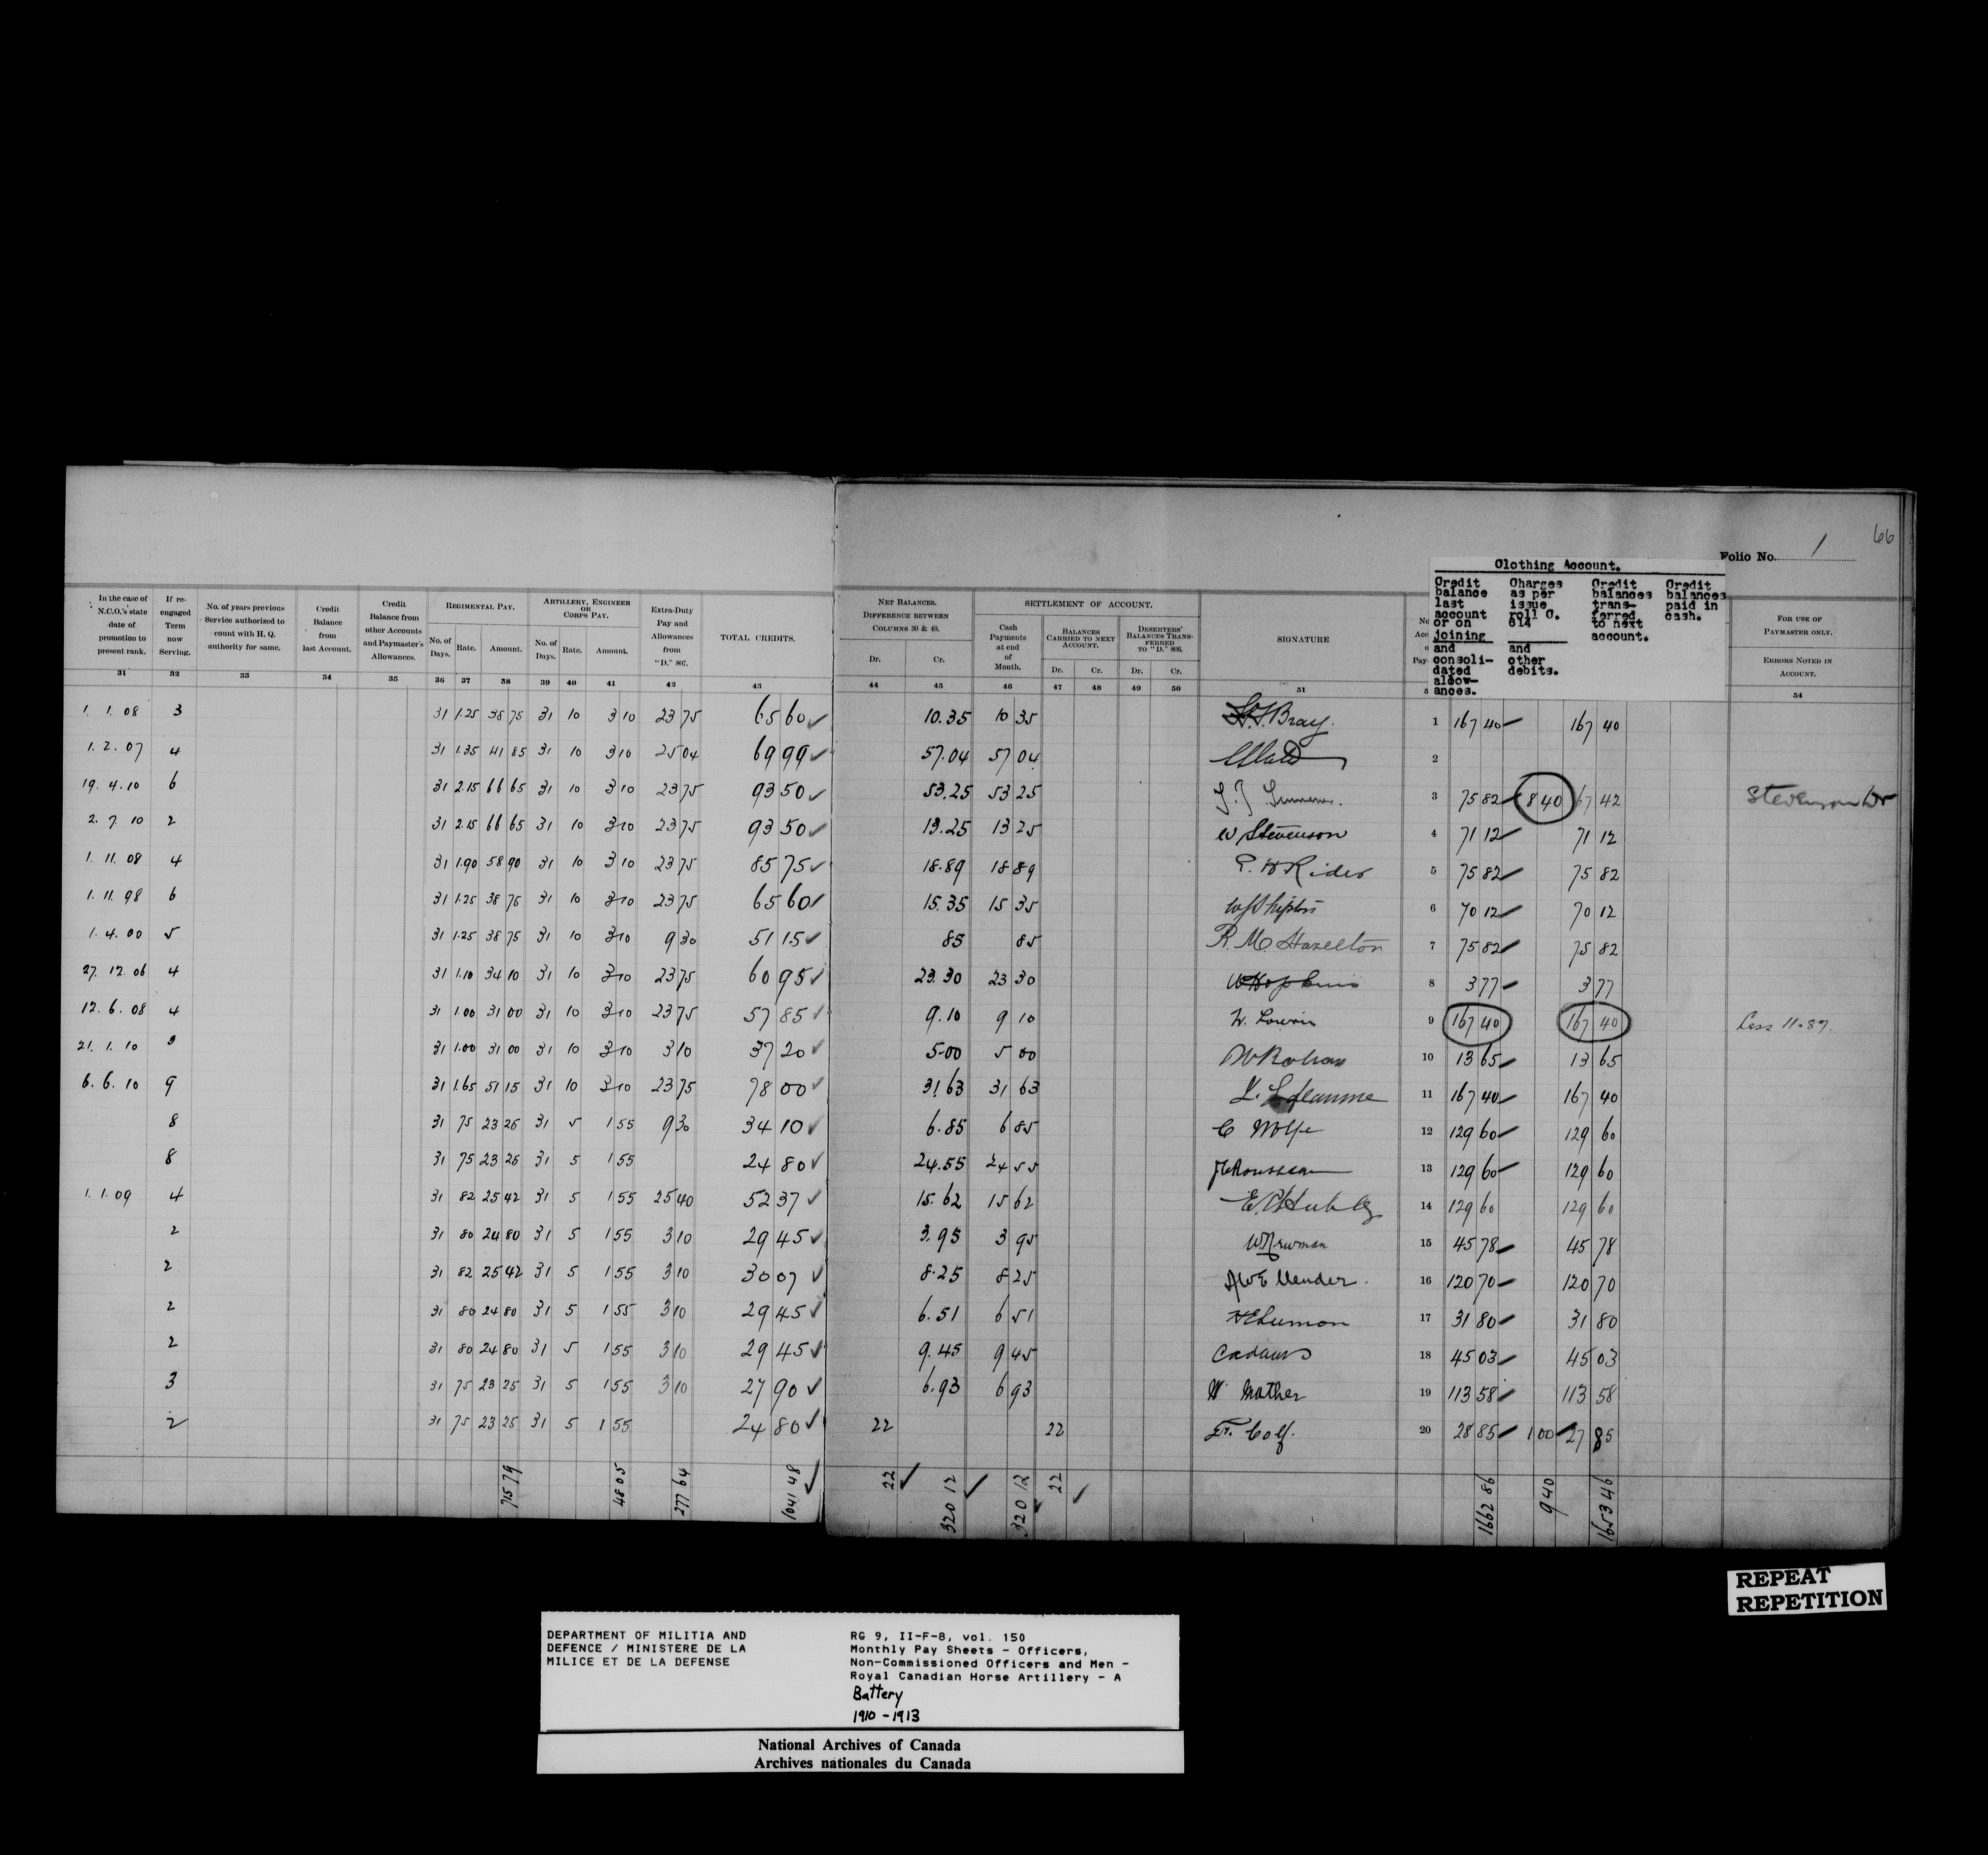 66
Folio No. 1
Clothing Account.
In the case of N.C.O.'s state date of promotion to present rank.
If re-engaged Term now Serving.
No. of years previous Service authorized to count with H. Q. authority for same.
Credit Balance from last Account.
Credit Balance from other Accounts and Paymaster's Allowances.
REGIMENTAL PAY.
No. of Days. Rate. Amount.
ARTILLERY, ENGINEER OR CORPS PAY.
No. of Days. Rate. Amount.
Extra-Duty Pay and Allowances from "D." 807.
TOTAL CREDITS.
NET BALANCES. DIFFERENCE BETWEEN COLUMNS 30 & 40.
Dr. Cr.
SETTLEMENT OF ACCOUNT.
Cash Payments at end of Month.
BALANCES CARRIED TO NEXT ACCOUNT.
Dr. Cr.
DESERTERS' BALANCES TRANSFERRED TO "D." 806.
Dr. Cr.
SIGNATURE
Credit balance last account or on joining and consolidated allowances.
Charges as per issue roll C. 614 and other debits.
Credit balances transferred to next account.
Credit balances paid in cash.
FOR USE OF PAYMASTER ONLY.
ERRORS NOTED IN ACCOUNT.
31 32 33 34 35 36 37 38 39 40 41 42 43 44 45 46 47 48 49 50 51 54
1. 1. 08 3 31 1.25 38 75 31 10 3 10 23 75 65 60 10.35 10 35 Bray. 1 167 40 167 40
1. 2. 07 4 31 1.35 41 85 31 10 3 10 25 04 69 99 57.04 57 04 2
19. 4. 10 6 31 2.15 66 65 31 10 3 10 23 75 93 50 53.25 53 25 3 75 82 8 40 67 42 Stevenson W
2. 7. 10 2 31 2.15 66 65 31 10 3 10 23 75 93 50 13.25 13 25 W Stevenson 4 71 12 71 12
1. 11. 08 4 31 1.90 58 90 31 10 3 10 23 75 85 75 18.89 18 89 P. H Rider 5 75 82 75 82
1. 11. 98 6 31 1.25 38 75 31 10 3 10 23 75 65 60 15.35 15 35 6 70 12 70 12
1. 4. 00 5 31 1.25 38 75 31 10 3 10 9 30 51 15 85 85 R. Mc Hazelton 7 75 82 75 82
27. 12. 06 4 31 1.10 34 10 31 10 3 10 23 75 60 95 23.30 23 30 W Hopkins 8 3 77 3 77
12. 6. 08 4 31 1.00 31 00 31 10 3 10 23 75 57 85 9.10 9 10 9 167 40 167 40 Less 11.89.
21. 1. 10 3 31 1.00 31 00 31 10 3 10 3 10 37 20 5.00 5 00 10 13 65 13 65
6. 6. 10 9 31 1.65 51 15 31 10 3 10 23 75 78 00 31.63 31 63 L. Laflamme 11 167 40 167 40
8 31 75 23 25 31 5 1 55 9 30 34 10 6.85 6 85 C Wolfe 12 129 60 129 60
8 31 75 23 25 31 5 1 55 24 80 24.55 24 55 Rousseau 13 129 60 129 60
1. 1. 09 4 31 82 25 42 31 5 1 55 25 40 52 37 15.62 15 62 14 129 60 129 60
2 31 80 24 80 31 5 1 55 3 10 29 45 3.95 3 95 W Newman 15 45 78 45 78
2 31 82 25 42 31 5 1 55 3 10 30 07 8.25 8 25 16 120 70 120 70
2 31 80 24 80 31 5 1 55 3 10 29 45 6.51 6 51 17 31 80 31 80
2 31 80 24 80 31 5 1 55 3 10 29 45 9.45 9 45 18 45 03 45 03
3 31 75 23 25 31 5 1 55 3 10 27 90 6.93 6 93 W Mather 19 113 58 113 58
2 31 75 23 25 31 5 1 55 24 80 22 22 20 28 85 1 00 27 85
715 79 48 05 277 64 1041 48 22 320 12 320 12 22 1662 86 9 40 1653 46
REPEAT
REPETITION
DEPARTMENT OF MILITIA AND
DEFENCE / MINISTERE DE LA
MILICE ET DE LA DEFENSE
RG 9, II-F-8, vol. 150
Monthly Pay Sheets - Officers,
Non-Commissioned Officers and Men -
Royal Canadian Horse Artillery - A
Battery
1910 - 1913
National Archives of Canada
Archives nationales du Canada